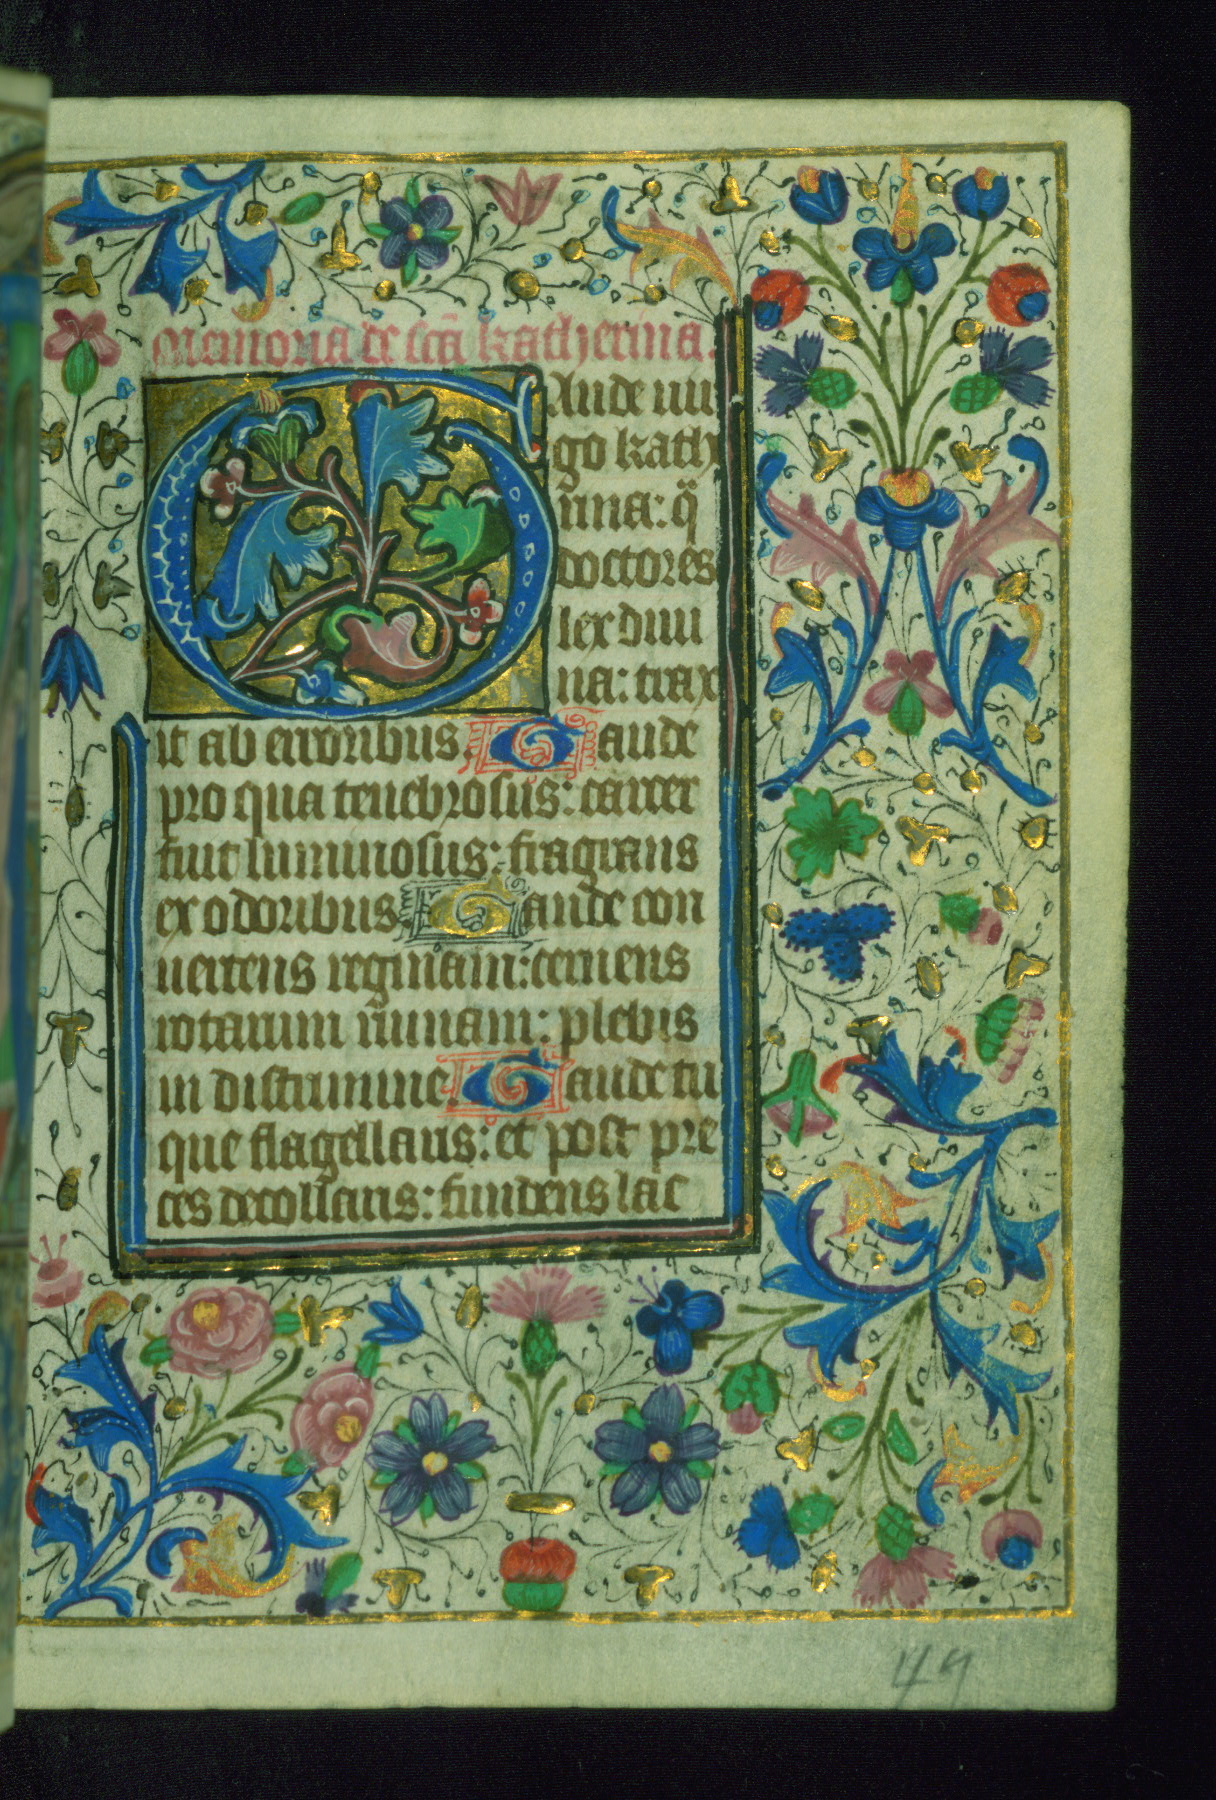 Memoria de scā katherina.
Gaude uir
go kath
rina: q̄
doctores
lex diui
na: trax
it ab erroribus Gaude
pro qua tenebrosus: carcer
fuit luminosus: fragrans
ex odoribus Gaude con
uertens reginam: cernens
rotarum ruinam: plebis
in discrimine. Gaude tu
que flagellaris: et post pre
ces decollaris: fundens lac
49